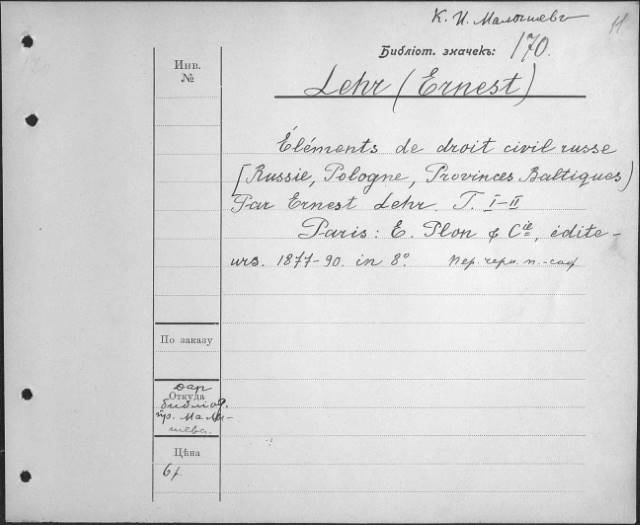 К. И. Малышевъ
Библіот. значекъ: 170.
Инв.
№
Lehr (Ernest)
Éléments de droit civil russe
(Russie, Pologne, Provinces Baltiques)
Par Ernest Lehr. T. I-II
Paris: E. Plon & Cie, édite-
urs. 1877-90. in 8°. пер. черн. п.-саф
По заказу
Откуда
дар
библіот.
пр. Малы-
шева.
Цѣна